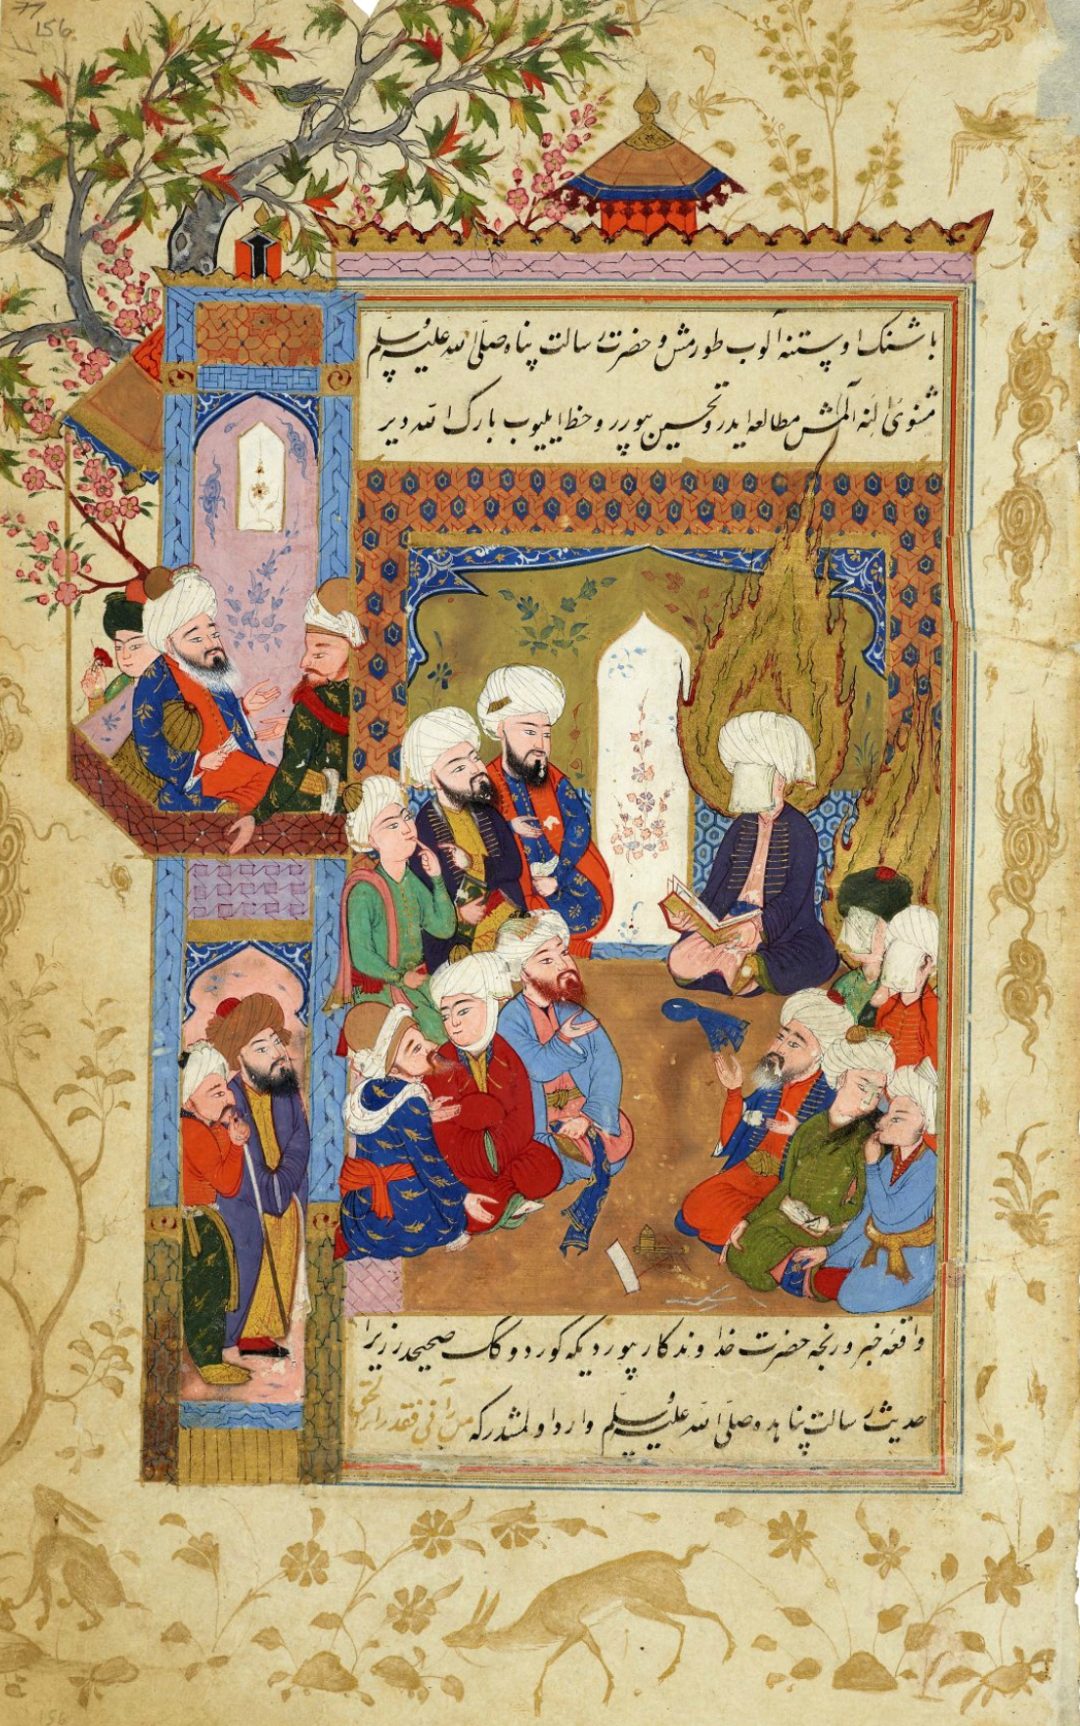 156
باشنك اوستنه آلوب طورمش و حضرت رسالت پناه صلّى الله عليه وسلم
مثنوئ النه آلمش مطالعه ايدر و تحسين بيورر و حظ ايليوب بارك الله دير
واقعه خبر ورنجه حضرت خداوندكار بيورديكه كوردوكك صحيحدر زيرا
حديث رسالت پناهده صلّى الله عليه وسلم وارد اولمشدركه من رآنى فقد راى الحق
156